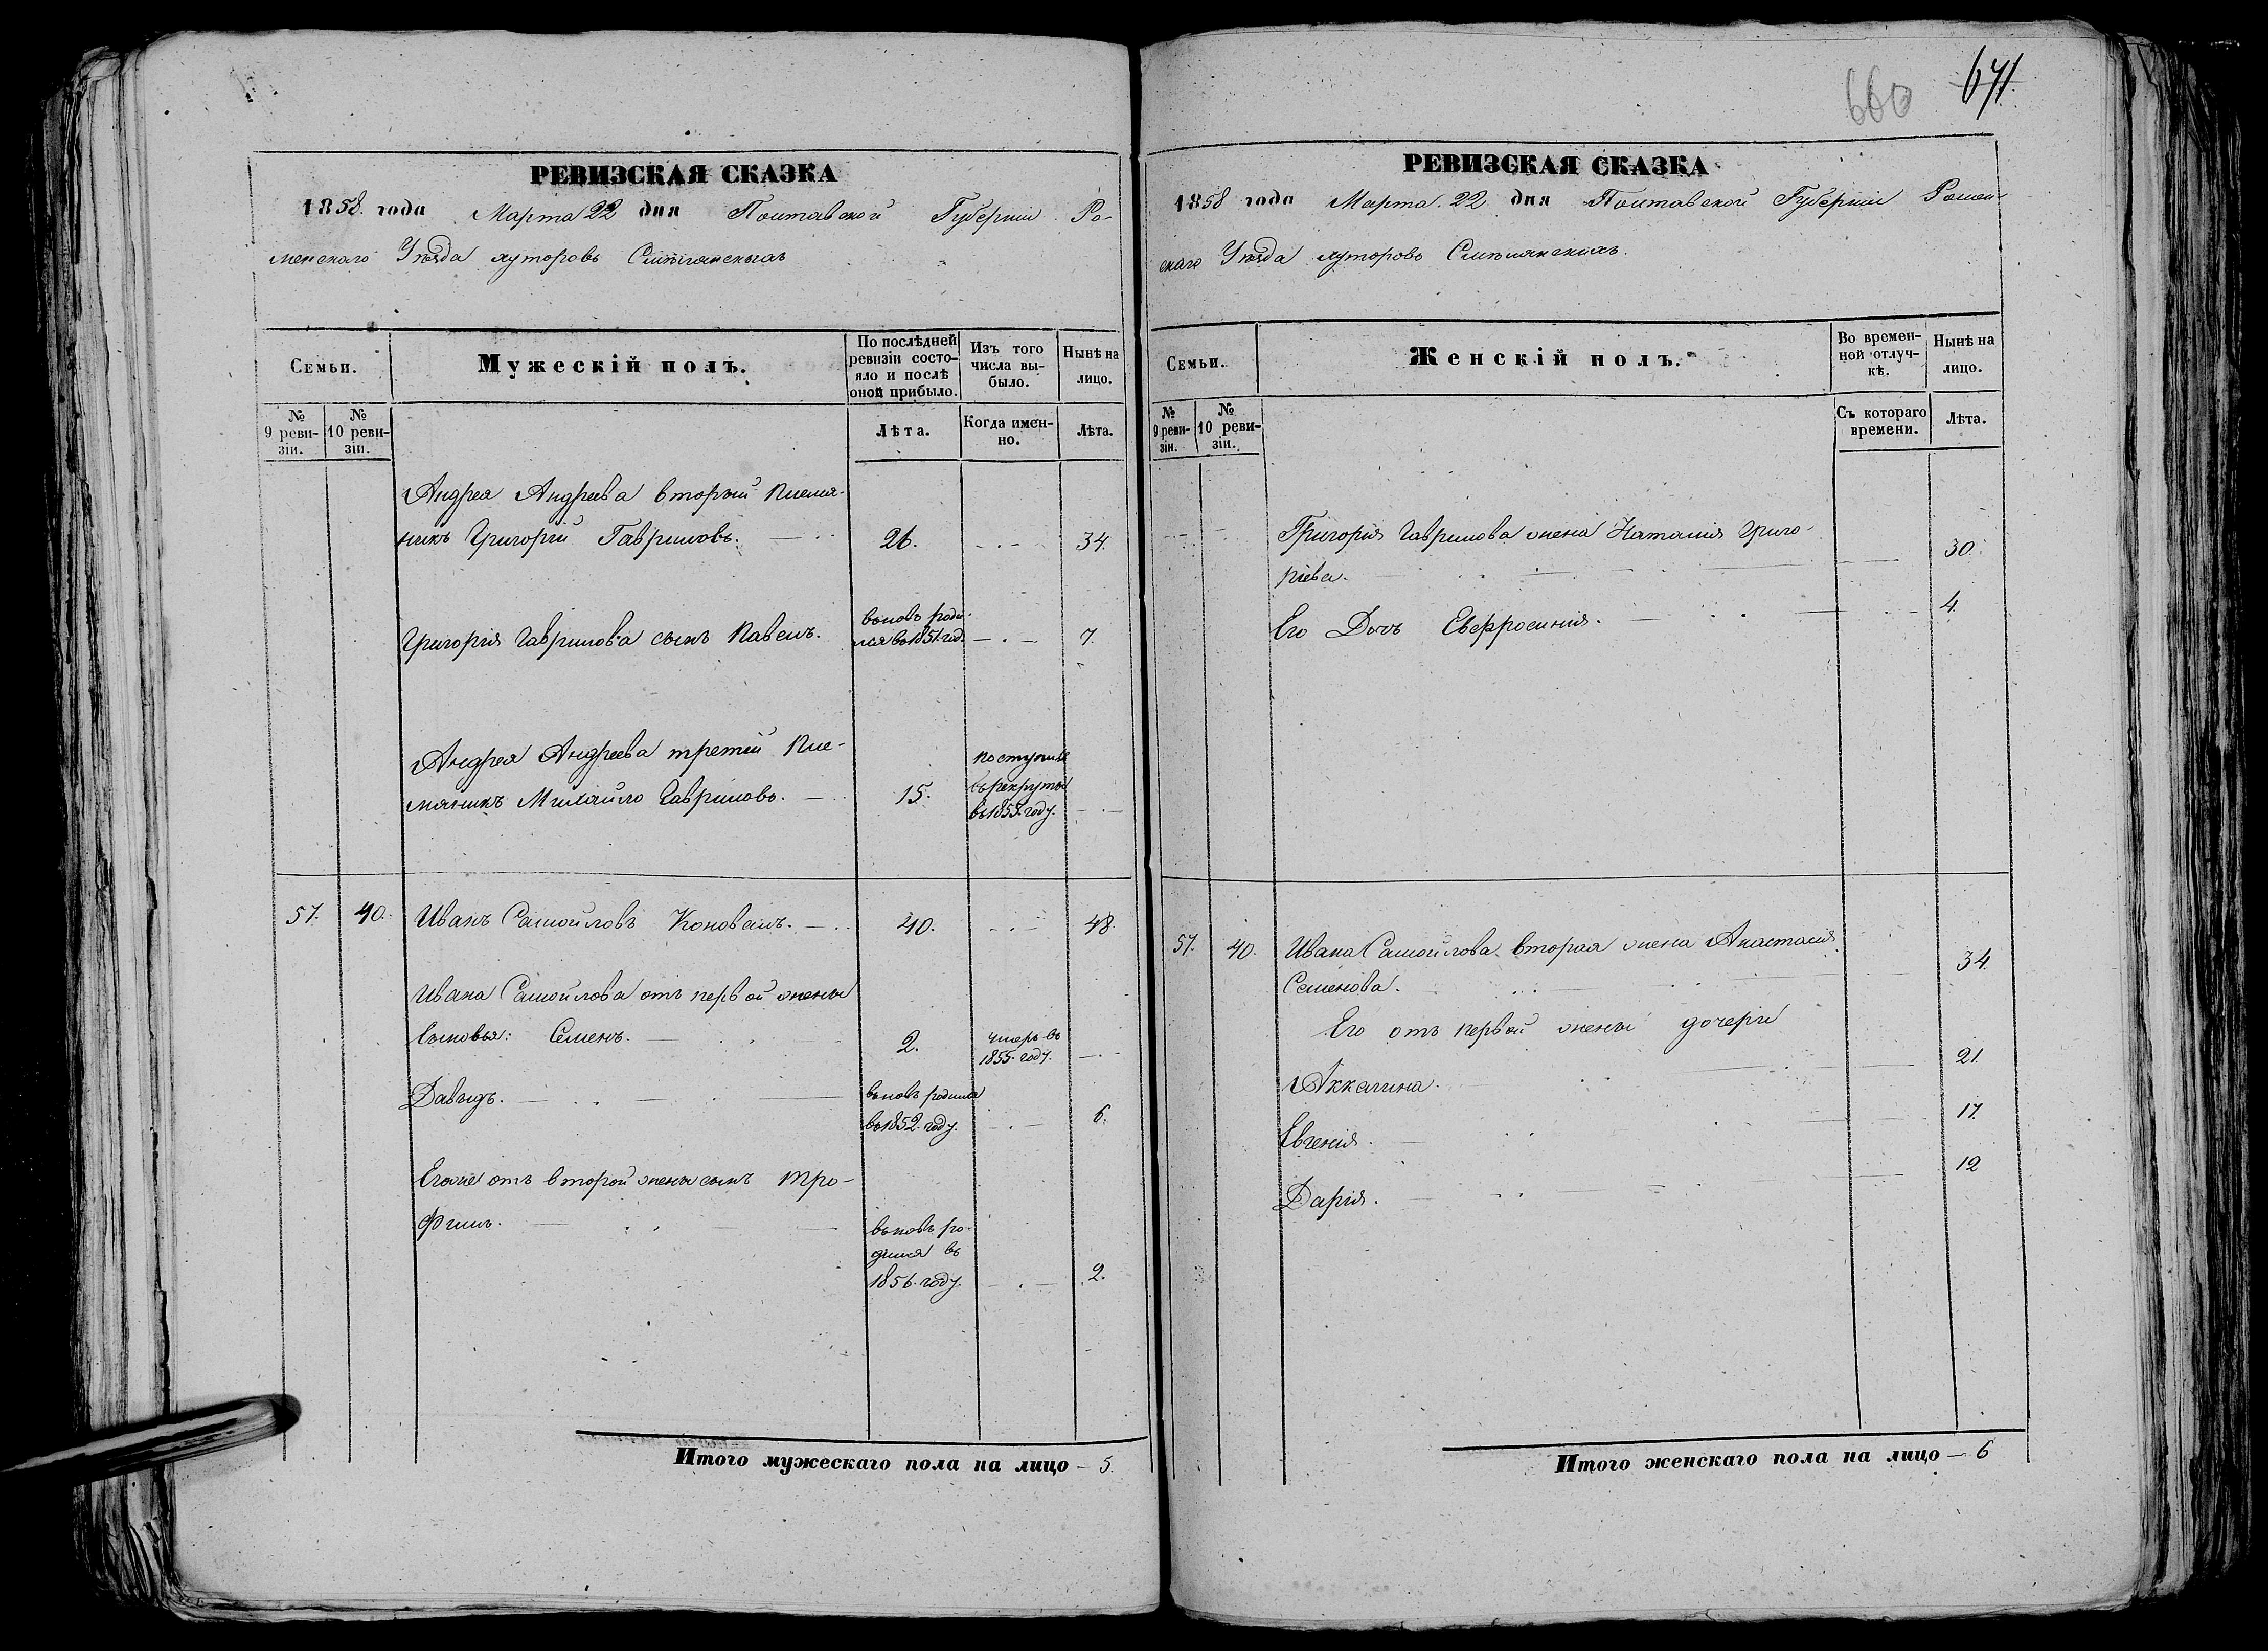 660 671.
РЕВИЗСКАЯ СКАЗКА
1858. года Марта 22 дня Полтавской Губерніи Ро-
менскаго Уѣзда хуторовъ Смѣлянскихъ
Семьи.
Мужескій полъ.
По послѣдней
ревизіи состо-
яло и послѣ
оной прибыло.
Изъ того
числа вы-
было.
Нынѣ на
лицо.
№
9 реви-
зіи.
№
10 реви-
зіи.
Лѣта.
Когда имен-
но.
Лѣта.
Андрея Андреева вторый племя-
никъ Григорій Гавриловъ. 26. 34.
Григорія Гаврилова сынъ Павелъ. вновь роди-
лся въ 1851. год. 7
Андрея Андреева третій пле-
мяникъ Михайло Гавриловъ. 15. поступилъ
въ рекруты
въ 1855. году.
57. 40. Иванъ Самойловъ Коновалъ. 40. 48.
Ивана Самойлова отъ первой жены
сыновья: Семенъ. 2. умеръ въ
1855. году.
Давыдъ. вновь родился
въ 1852. году. 6.
Его же отъ второй жены сынъ Тро-
фимъ. вновь ро-
дился въ
1856. году. 2.
Итого мужескаго пола на лицо – 5.
РЕВИЗСКАЯ СКАЗКА
1858 года Марта. 22 дня Полтавской Губерніи Ромен-
скаго Уѣзда хуторовъ Смѣлянскихъ.
Семьи.
Женскій полъ.
Во времен-
ной отлуч-
кѣ.
Нынѣ на
лицо.
№
9 реви-
зіи.
№
10 реви-
зіи.
Съ котораго
времени.
Лѣта.
Григорія Гаврилова жена Наталія Григо-
ріева. 30.
Его Дочь Евфросинія. 4.
57. 40. Ивана Самойлова вторая жена Анастасія
Семенова. 34.
Его отъ первой жены дочери
Аккелина. 21.
Евгенія. 17.
Дарія. 12
Итого женскаго пола на лицо – 6